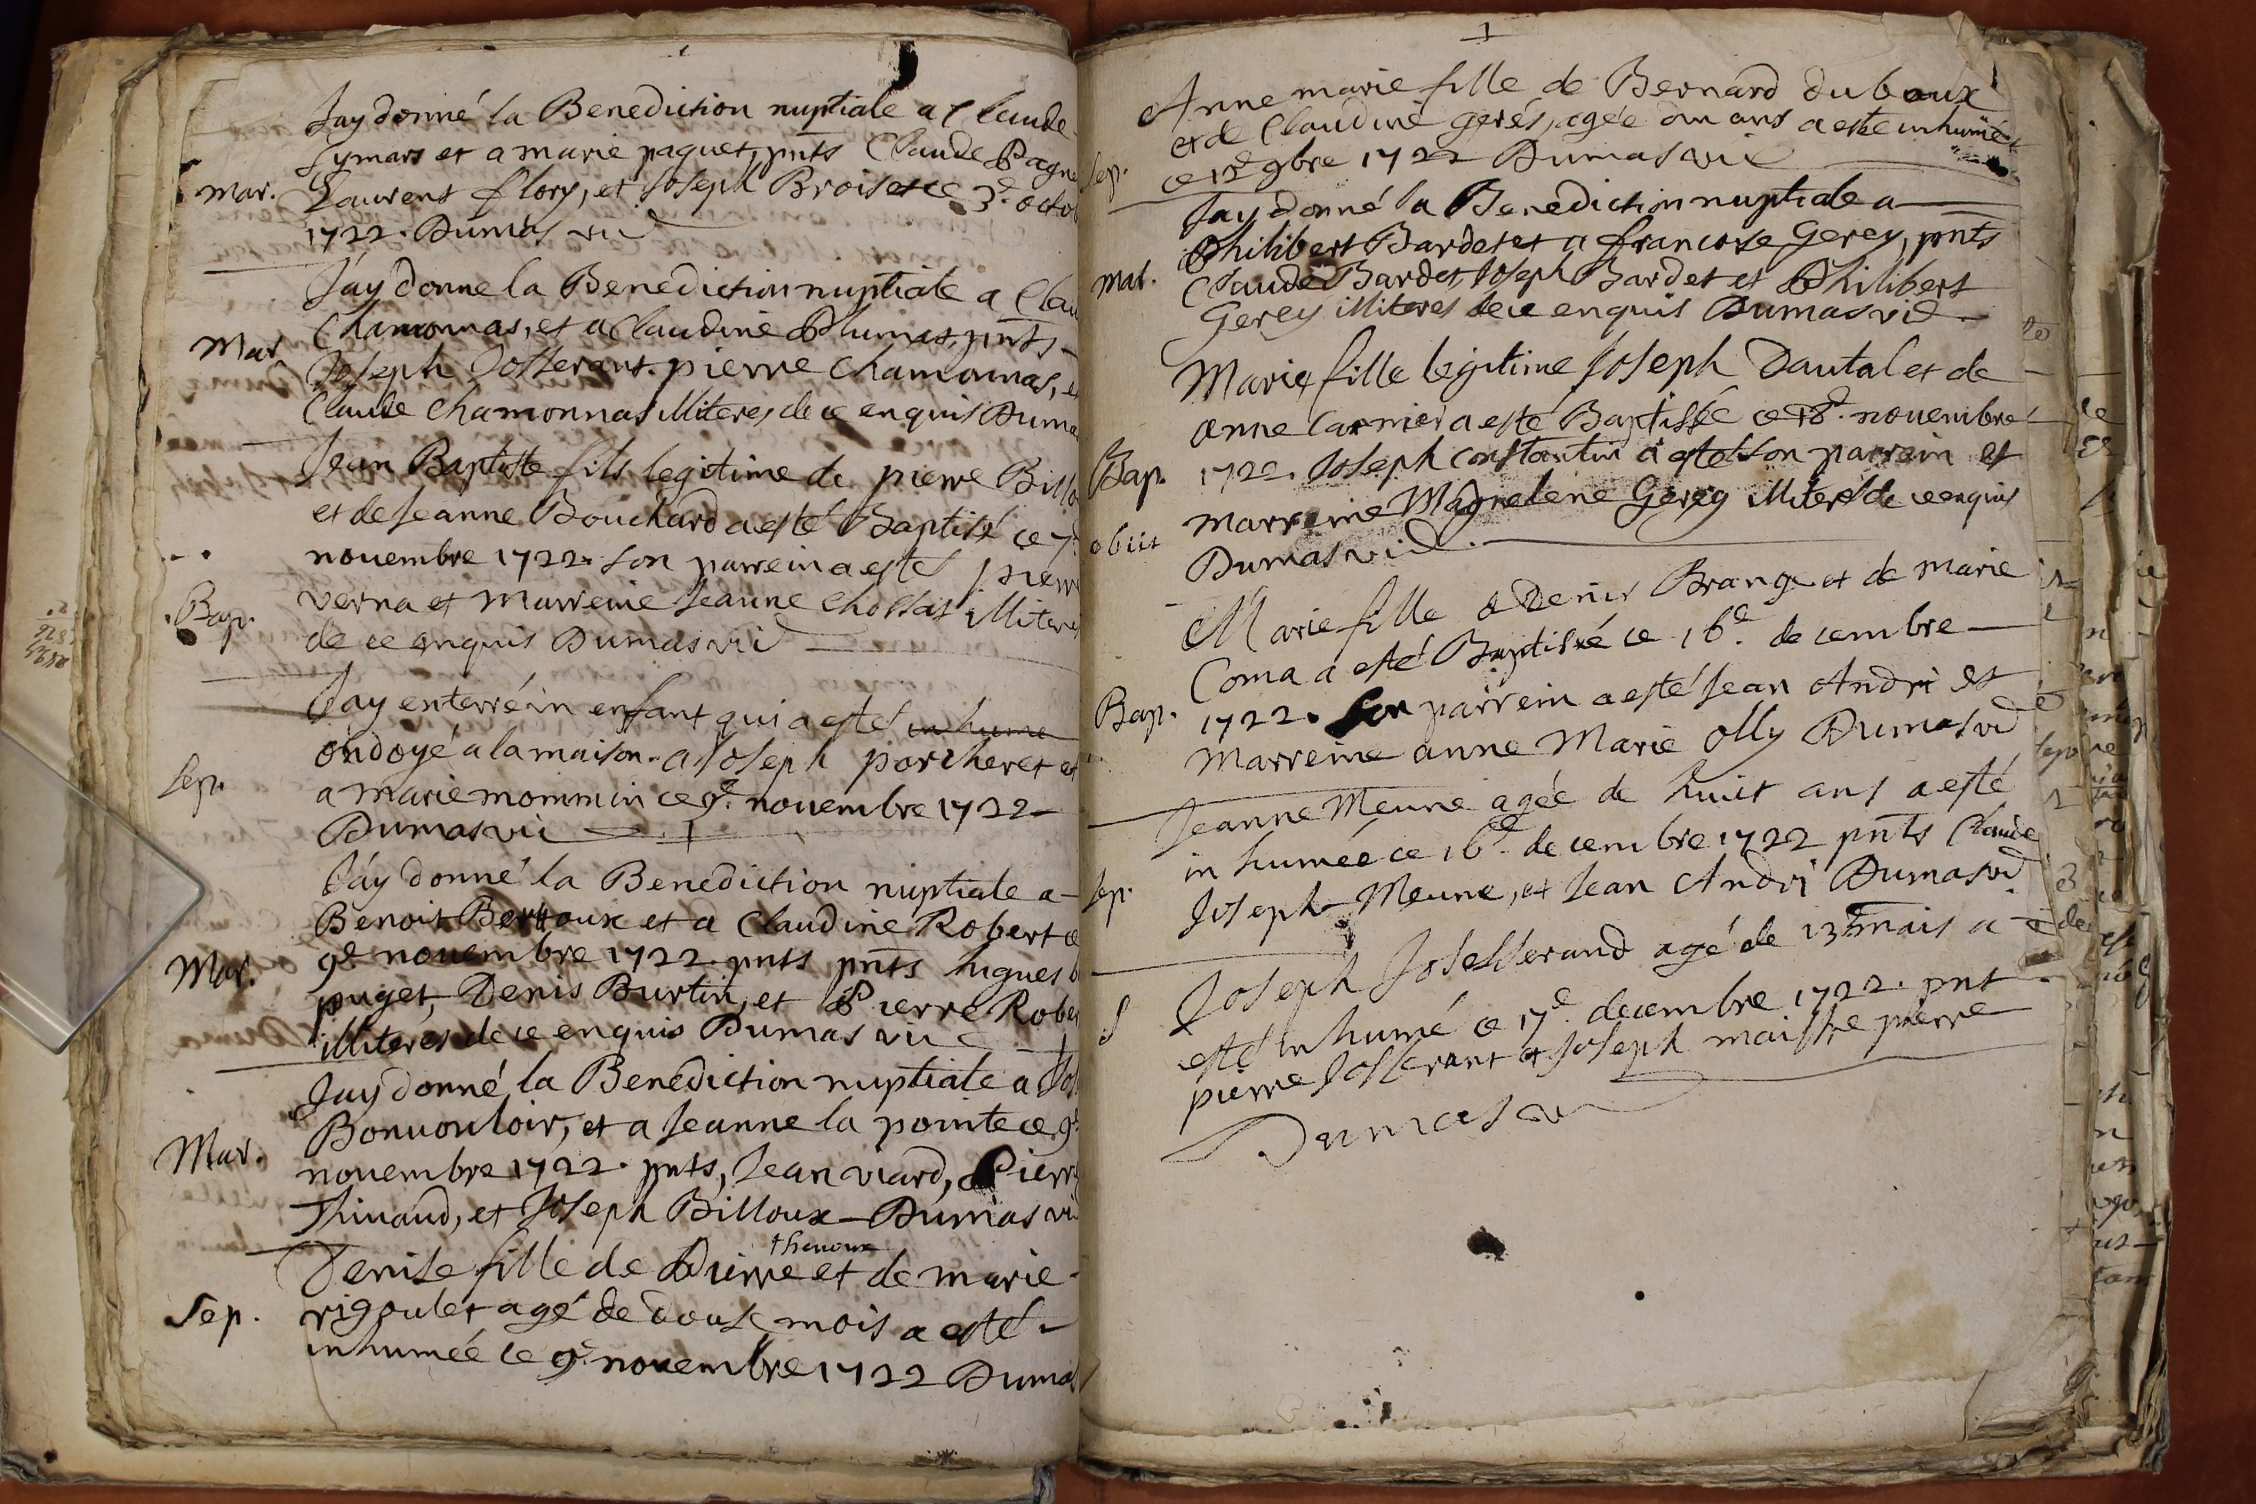 Jay donné la Benediction nuptiale a Claude
Symars et a marie paquet, pnts Claude Pagne
mar. Laurens flory, et Joseph Broiset ce 3e. octob
1722. Dumas vic
Jay donne la Benediction nuptiale a Clau
Chamonnas, et a Claudine Plumat, pnts
Mar. Joseph Josserant. pierre Chamonnas, et
Claude Chamonnas illiteres de ce enquis Dumas
Jean Baptiste fils legitime de pierre Billo
et de Jeanne Bouchard a esté Baptisé ce 7e
novembre 1722. son parrein a esté pierre
Bap. verna et Marreine Jeanne Chossat illiteres
de ce enquis Dumas vic
Jay enterré un enfant qui a esté inhumé
ondoyé a la maison. a Joseph porcheret et
Sep. a marie mommin ce 9e. novembre 1722
Dumas vic
Jay donné la Benediction nuptiale a
Benoit Bertoux et a Claudine Robert ce
9e novembre 1722. pnts pnts hugues
Mar. puget, Denis Burtin, et Pierre Rober
illiteres de ce enquis Dumas vic
Jay donné la Benediction nuptiale a Jos
Bonvouloir, et a Jeanne la pointe ce 9e
Mar. novembre 1722. pnts, Jean viard, Pierre
Thivaud, et Joseph Billoux Dumas vic
thenoux
Denise fille de Pierre et de marie
Sep. rigoulet agé de douse mois a esté
inhumée ce 9e novembre 1722 Dumas
Anne marie fille de Bernard duboux
et de Claudine gerés, agée d'un ans a esté inhumée
Sep. ce 12e 9bre 1722 Dumas vic
Jay donné la Benediction nuptiale a
Philibert Bardet et a francoise Gerey, pnts
mar. Claude Bardet, Joseph Bardet et Philibert
Gerey illiteres de ce enquis Dumas vic
Marie fille legitime Joseph Dautal et de
anne Carnier a esté Baptisée ce 18e. novembre
Bap. 1722. Joseph constantin a esté son parrein et
marreine Magnelene Gerey illiteres de ce enquis
obiit Dumas vic
Marie fille a Denis Brange et de marie
Coma a esté Baptisée ce 16e. decembre
Bap. 1722. son parrein a esté Jean Andri et
Marreine anne Marie olly Dumas vic
Jeanne Meune agée de huit ans a esté
inhumée ce 16e. decembre 1722 pnts Claude
Sep. Joseph Meune, et Jean Andri Dumas vic
Joseph Josesserand agé de 13 mois a
S esté inhumé ce 17e. decembre 1722. pnt
pierre Josserant et Joseph maistre pierre
Dumas vic